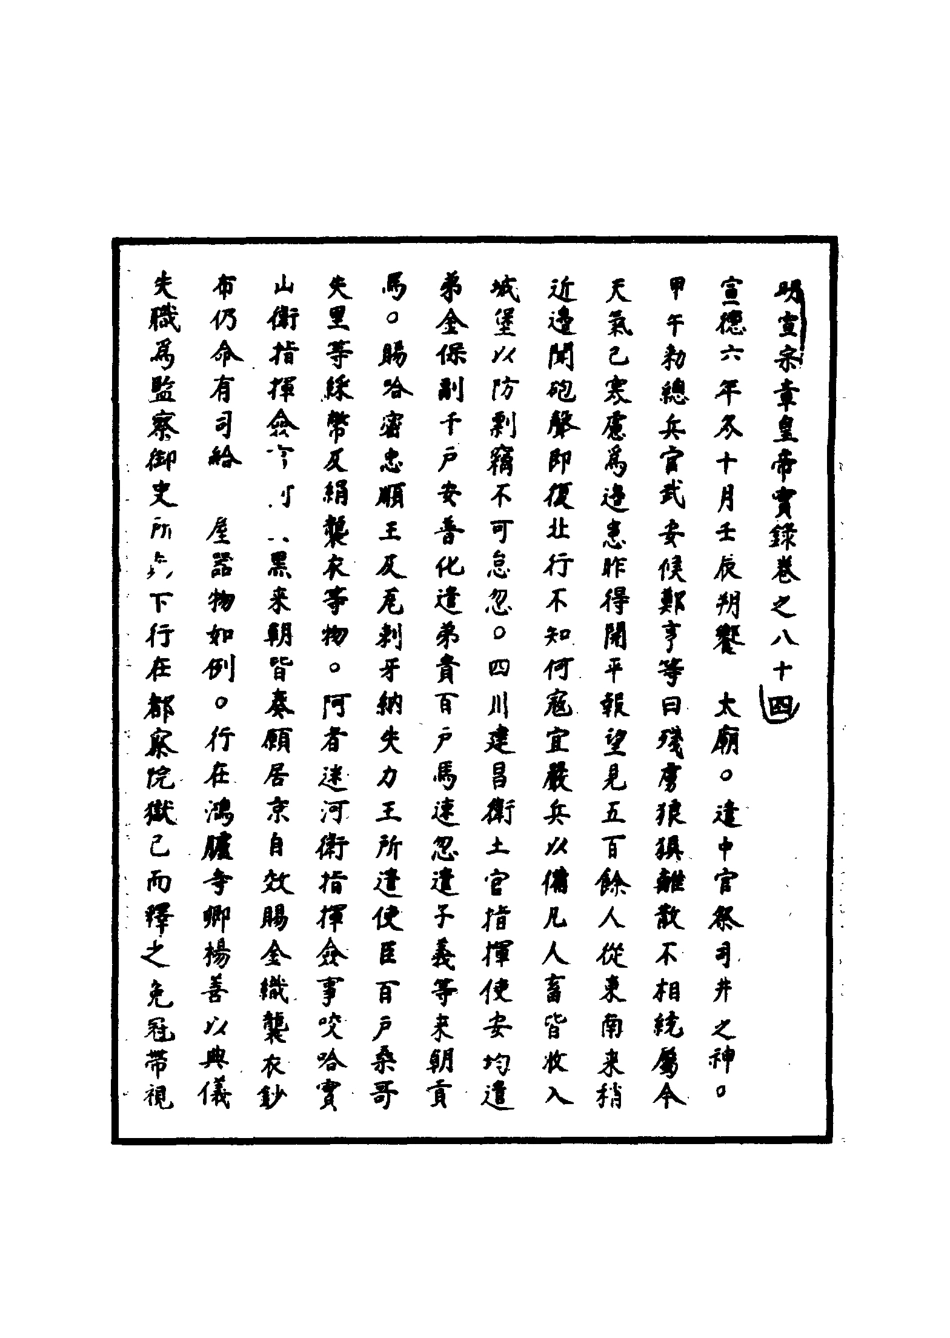 明宣宗章皇帝實錄卷之八十四
宣德六年冬十月壬辰朔饗 太廟。遣中官祭司井之神。
甲午勑總兵官武安侯鄭亨等曰殘虜狼狽離散不相統屬今
天氣已寒慮為邊患昨得開平報望見五百餘人從東南来稍
近邊聞砲聲即復北行不知何寇宜嚴兵以備凡人畜皆收入
城堡以防剽竊不可怠忽。四川建昌衛土官指揮使安均遣
弟金保副千户安普化遣弟貴百户馬速忽遣子義等来朝貢
馬。賜哈密忠順王及瓦剌牙納失力王所遣使臣百户桑哥
失里等綵幣及絹襲衣等物。阿者迷河衛指揮僉事咬哈實
山衛指揮僉 黑来朝皆奏願居京自效賜金織襲衣鈔
布仍命有司給 屋器物如例。行在鴻臚寺卿楊善以典儀
失職為監察御史所 下行在都察院獄已而釋之免冠帶視